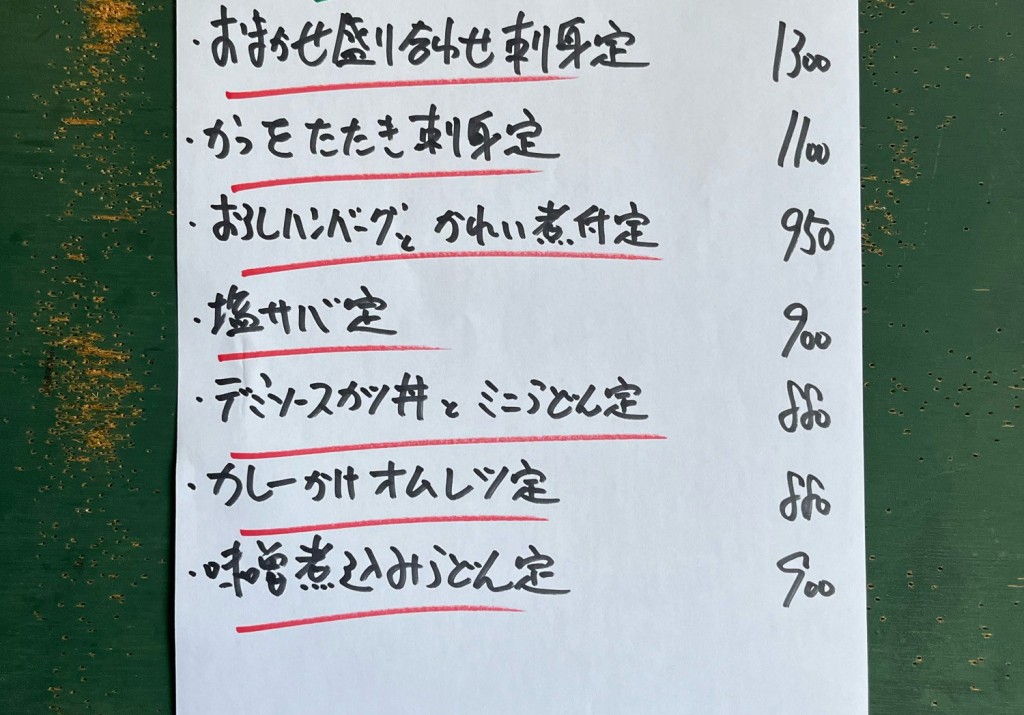 ・おまかせ盛り合わせ刺身定 1300
・かつをたたき刺身定 1100
・おろしハンバーグとかれい煮付定 950
・塩サバ定 900
・デミソースカツ丼とミニうどん定 880
・カレーかけオムレツ定 880
・味噌煮込みうどん定 900